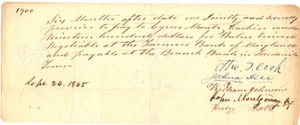 1900
Six Months after date we Jointly and severally
promise to pay to Cyrus Mantz Cashier
Nineteen hundred dollars for Value received
Negotiable at the Farmers Bank of Maryland
and payable at the Branch Bank in Frederick
Town
Sept 24. 1845
William Johnson
John Montgomery